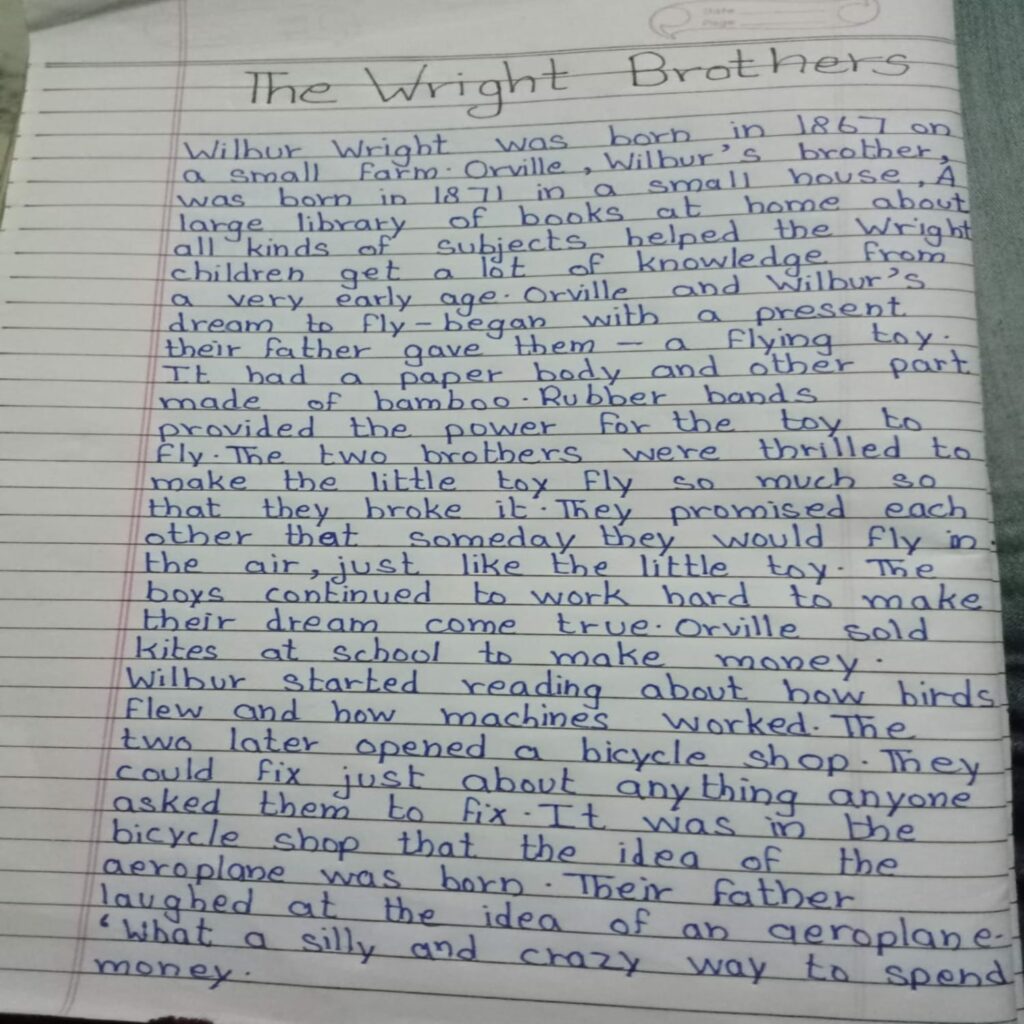 Date
Page
The Wright Brothers
Wilbur Wright was born in 1867 on
a small farm. Orville, Wilbur's brother,
was born in 1871 in a small house, A
large library of books at home about
all kinds of subjects helped the Wright
children get a lot of knowledge from
a very early age. Orville and Wilbur's
dream to fly - began with a present
their father gave them - a flying toy.
It had a paper body and other part
made of bamboo. Rubber bands
provided the power for the toy to
fly. The two brothers were thrilled to
make the little toy fly so much so
that they broke it. They promised each
other that someday they would fly in
the air, just like the little toy. The
boys continued to work hard to make
their dream come true. Orville sold
kites at school to make money.
Wilbur started reading about how birds
flew and how machines worked. The
two later opened a bicycle shop. They
could fix just about anything anyone
asked them to fix. It was in the
bicycle shop that the idea of the
aeroplane was born. Their father
laughed at the idea of an aeroplane.
'What a silly and crazy way to spend
money.